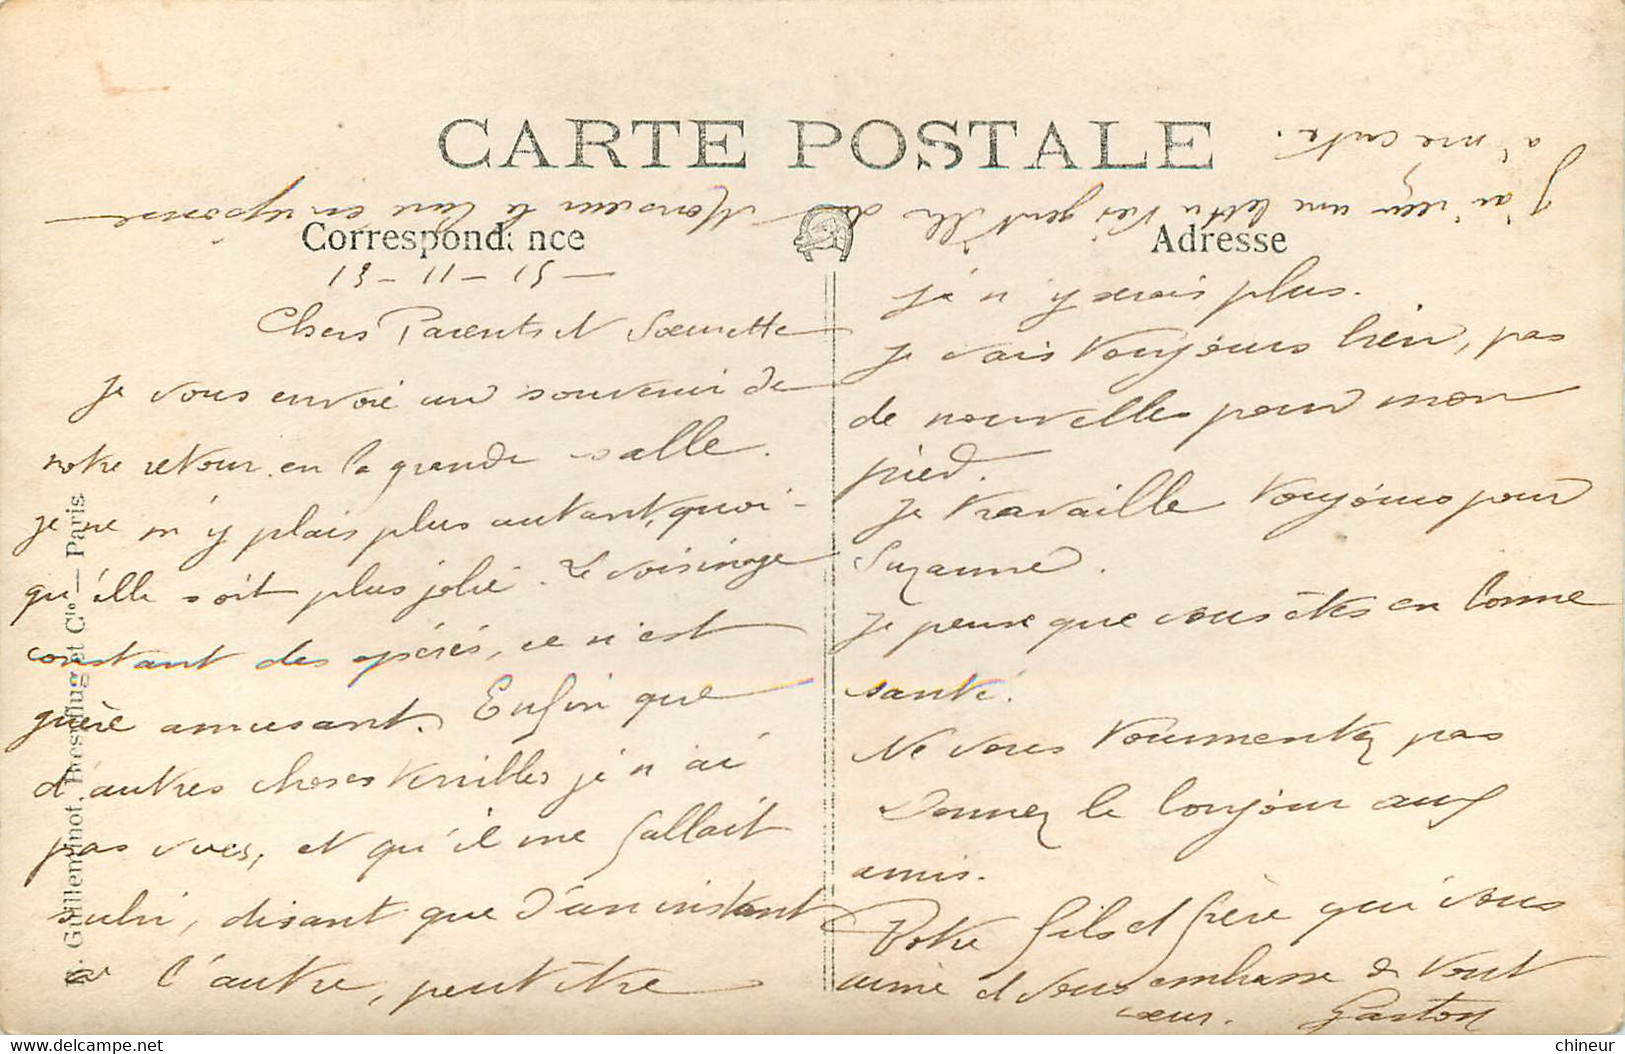 CARTE POSTALE
Correspondance
Adresse
13 - 11 - 15 -
Chers Parents et Sœurette
Je vous envoie un souvenir de
notre retour en la grande salle.
je ne m'y plais plus autant, quoi-
qu'elle soit plus jolie. Le voisinage
constant des opérés, ce n'est
guère amusant. Enfin que
d'autres choses terribles je n'ai
pas vues, et qu'il me fallait
subir, disant que d'un instant
à l'autre, peut être
je n'y serais plus.
Je vais toujours bien, pas
de nouvelles pour mon
pied.
Je travaille toujours pour
Suzanne.
Je pense que vous êtes en bonne
santé.
Ne vous tourmentez pas
Donnez le bonjour aux
amis.
Votre fils et frère qui vous
aime et vous embrasse de tout
cœur. Gaston
J'ai reçu une lettre très gentille de Monsieur le en réponse
à ma carte.
R. Guilleminot, Bœspflug et Cie — Paris
chineur